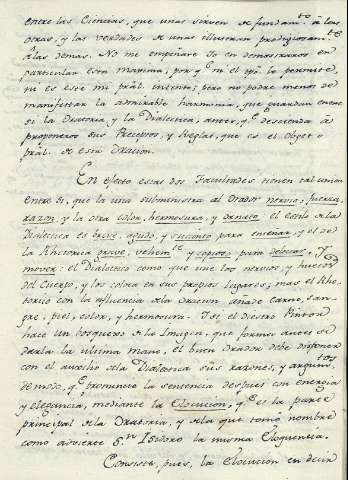 entre las Ciencias, que unas sirven de fundam.to á las
otras, y las verdades de unas illustran prodigiosam.te
á las demas. No me empeñare Yo en demostraros en
particular esta maxima, por q.e ni el lo permite,
ni es esse mi pral. intento; pero no podre menos de
manifestar la admirable harmonia, que guardan entre
si la Oratoria, y la Dialectica, antes, q.e descienda á
proponeros sus Preceptos, y Reglas, que es el Objeto
pral. de esta Oracion.
En efecto estas dos Facultades tienen tal union
entre si, que la una subministra al Orador nervio, fuerza,
razon; y la otra color, hermosura, y ornato. el estilo de la
Dialectica es breve, agudo, y succinto para enseñar; y el de
la Rhetorica grave, vehem.te y copioso; para deleitar, y
mover: el Dialectico como que une los nervios, y huesos
del Cuerpo, y los coloca en sus propios lugares; mas el Rhe-
torico con la afluencia de la Oracion añade carne, san-
gre, piel, color, y hermosura. Y si el diestro Pintor
hace un bosquejo de la Imagen, que formó antes de
darla la ultima mano, el buen Orador debe disponer
con el auxilio de la Dialectica sus razones, y argum.tos
de modo, q.e pronuncie la sentencia despues con energia
y elegancia, mediante la Elocucion, q.e es la parte
principal de la Oratoria, y de la que tomó nombre
como advierte S.n Isidoro la misma Eloquencia.
Consiste, pues, la Elocucion en decir